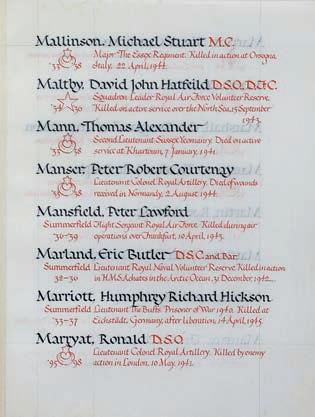 Mallinson, Michael Stuart M.C.
Major The Essex Regiment. Killed in action at Orsogna,
'33 38 Italy, 22 April, 1944.
Maltby, David John Hatfeild D.S.O., D.F.C.
Squadron Leader Royal Air Force Volunteer Reserve.
'34 '36 Killed on active service over the North Sea, 15 September
1943.
Mann, Thomas Alexander
Second Lieutenant Sussex Yeomanry. Died on active
'33 38 service at Khartoum, 7 January, 1941.
Manser, Peter Robert Courtenay
Lieutenant Colonel Royal Artillery. Died of wounds
received in Normandy, 2 August, 1944.
Mansfield, Peter Lawford
Summerfield Flight Sergeant Royal Air Force. Killed during air
'30–'39 operations over Frankfurt, 10 April, 1945.
Marland, Eric Butler D.S.C. and Bar.
Summerfield Lieutenant Royal Naval Volunteer Reserve. Killed in action
'32–'36 in H.M.S. Achates in the Arctic Ocean, 31 December, 1942.
Marriott, Humphry Richard Hickson
Summerfield Lieutenant The Buffs. Prisoner of War 1940. Killed at
'33–'37 Eichstädt, Germany, after liberation, 14 April, 1945.
Marryat, Ronald D.S.O.
Lieutenant Colonel Royal Artillery. Killed by enemy
'95 '98 action in London, 10 May, 1941.